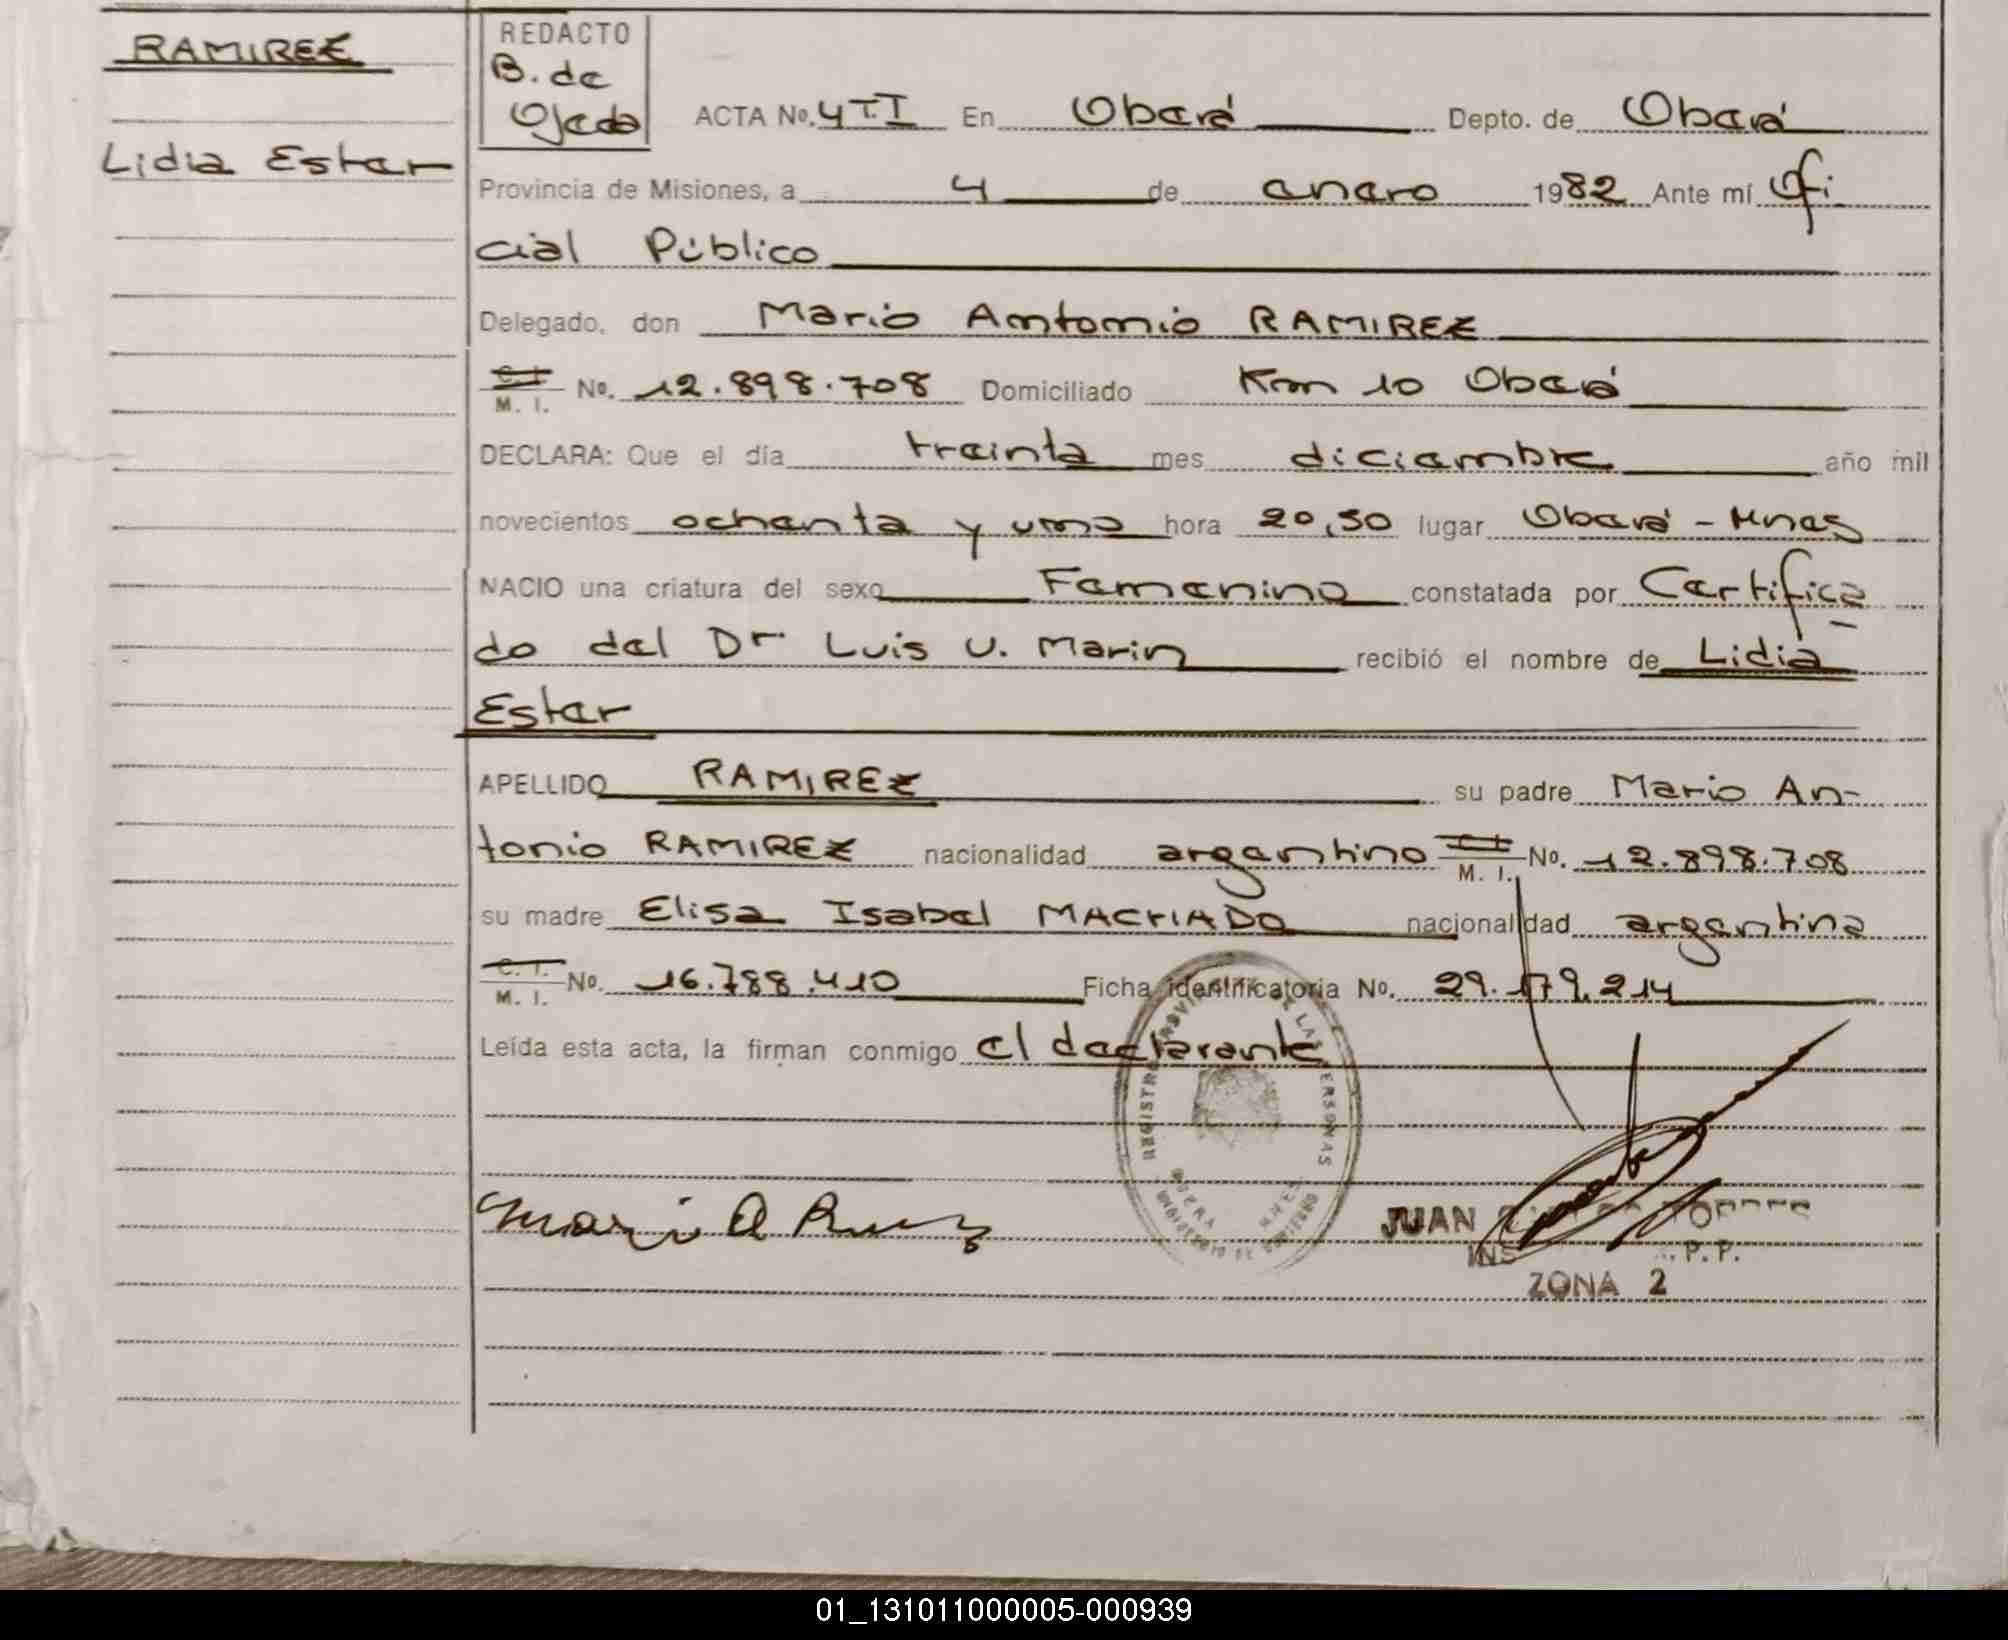 RAMIREZ
Lidia Ester
REDACTO
B. de
Ojeda
ACTA No. 4 T.I En Oberá Depto. de Oberá
Provincia de Misiones, a 4 de enero 1982 Ante mí Ofi
cial Público
Delegado, don Mario Antonio RAMIREZ
C. I.
M. I. No. 12.898.708 Domiciliado Km 10 Oberá
DECLARA: Que el día treinta mes diciembre año mil
novecientos ochenta y uno hora 20,50 lugar Oberá - Mnes
NACIO una criatura del sexo Femenino constatada por Certifica
do del Dr Luis U. Marin recibió el nombre de Lidia
Ester
APELLIDO RAMIREZ su padre Mario An-
tonio RAMIREZ nacionalidad argentino C. I. M. I. No. 12.898.708
su madre Elisa Isabel MACHADO nacionalidad argentina
C. I.
M. I. No. 16.788.410 Ficha identificatoria No. 29.179.214
Leída esta acta, la firman conmigo el declarante
REGISTRO LAS PERSONAS
JUAN TORRES
INS P.P.
ZONA 2
01_131011000005-000939